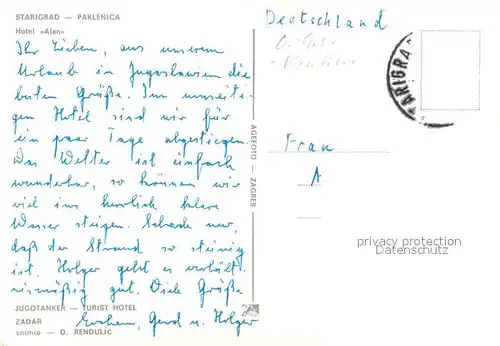 STARIGRAD — PAKLENICA
Hotel »Alan«
Ihr Lieben, aus unserem
Urlaub in Jugoslawien die
besten Grüße. Im umseiti-
gen Hotel sind wir für
ein paar Tage abgestiegen.
Das Wetter ist einfach
wunderbar, so können wir
viel ins herrlich klare
Wasser steigen. Schade nur,
daß der Strand so steinig
ist. Holger geht es verhält-
nismäßig gut. Viele Grüße
JUGOTANKER — TURIST HOTEL
ZADAR
Gerd u. Holger
snimio — D. RENDULIC
AGEFOTO — ZAGREB
Deutschland
STARIGRA
Frau
A
privacy protection
Datenschutz